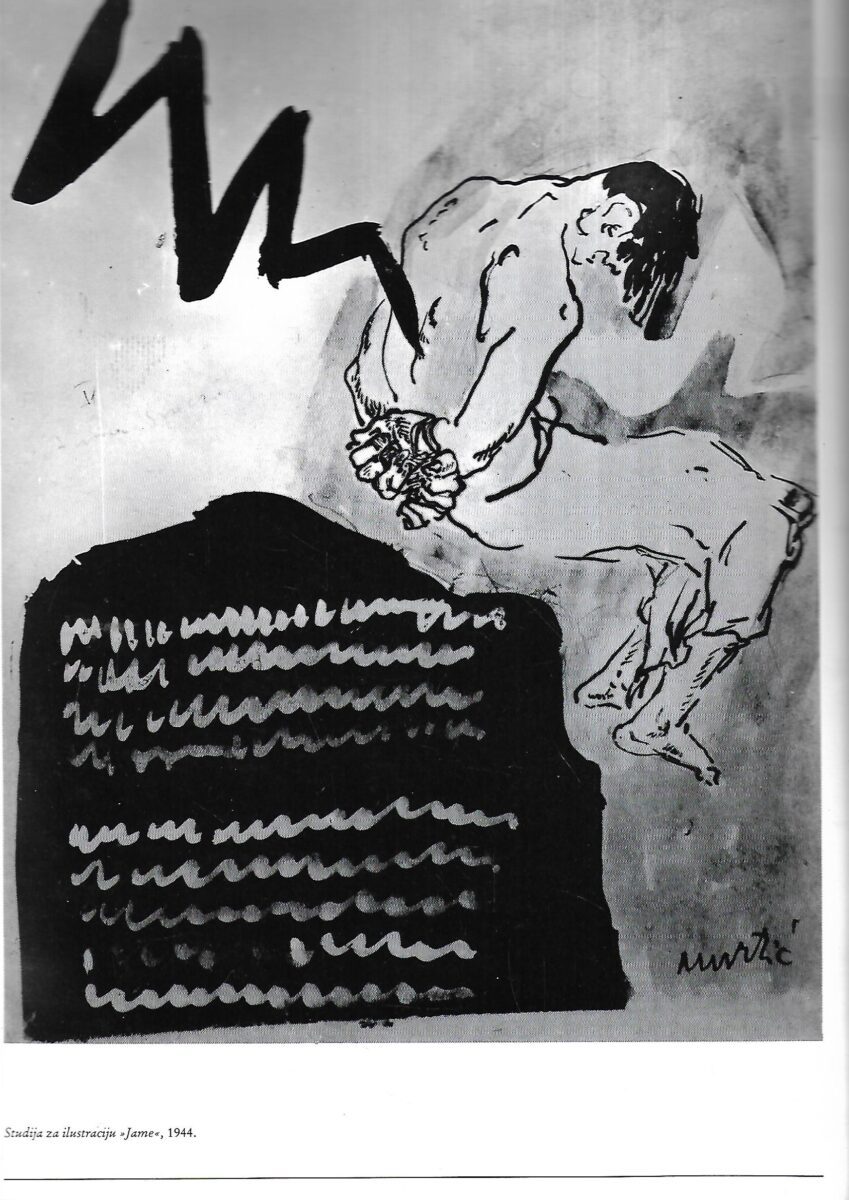 Murtić
Studija za ilustraciju »Jame«, 1944.